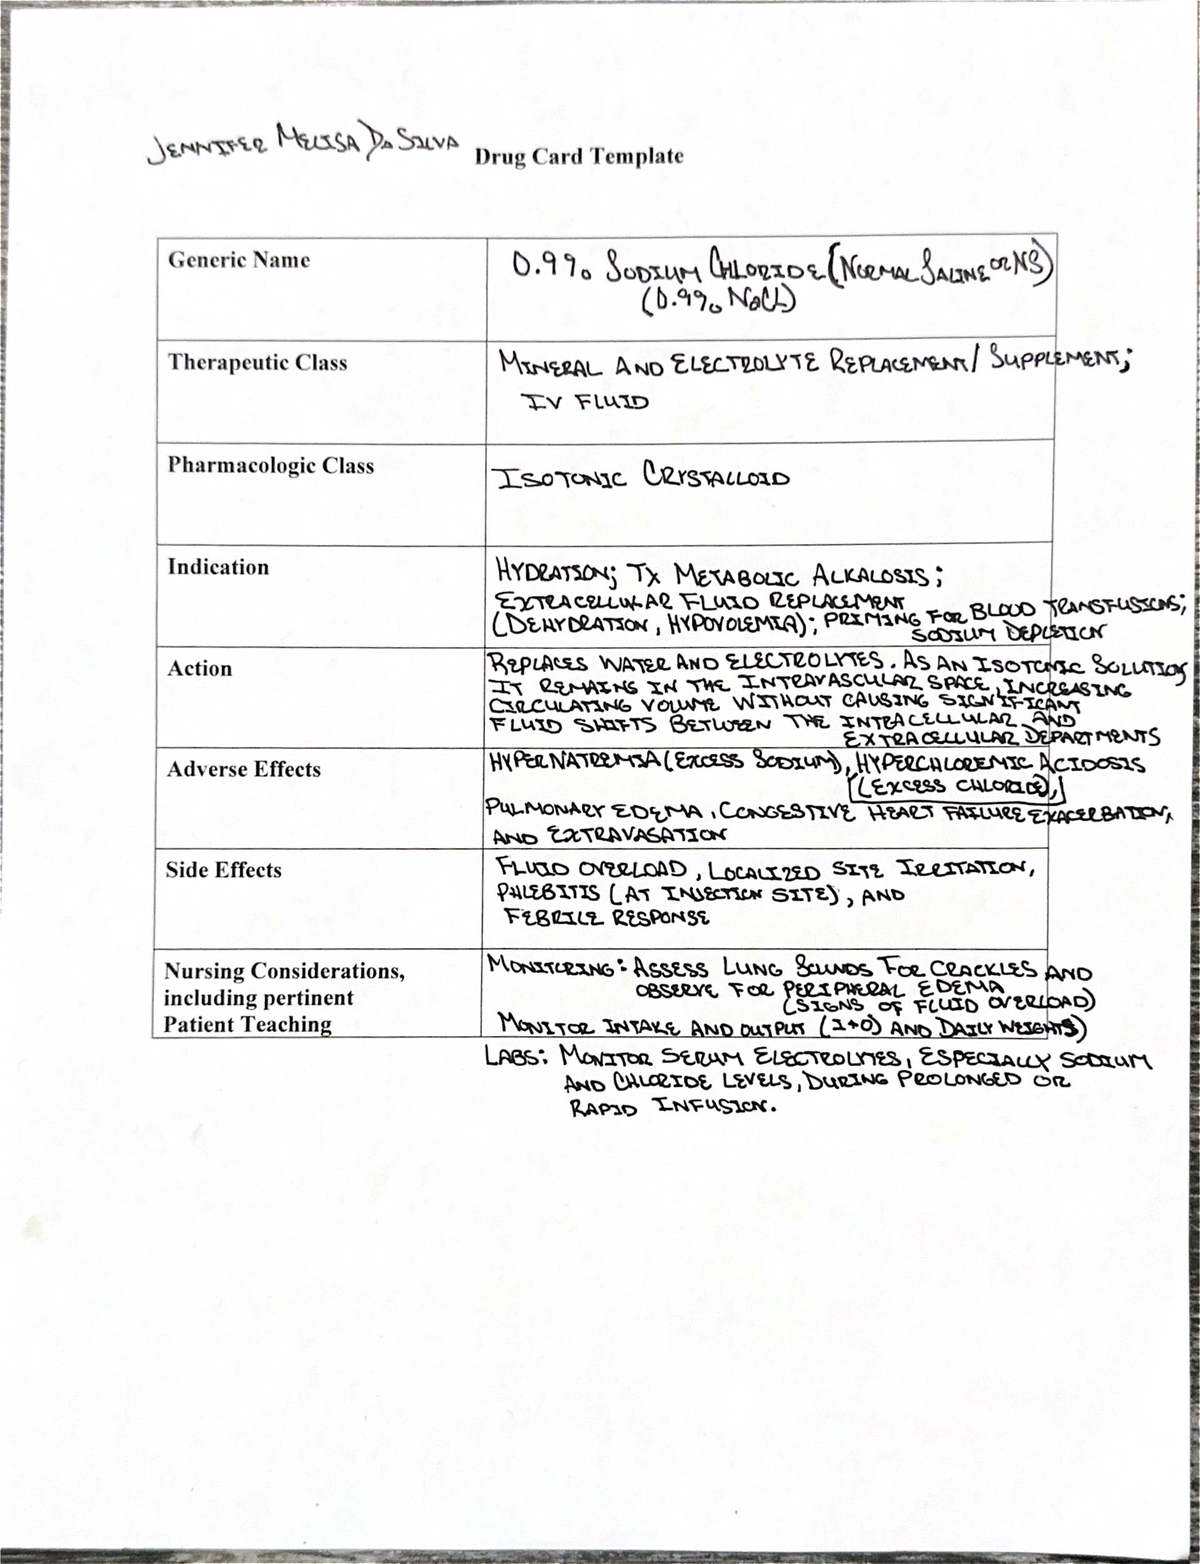 JENNIFER MELISA DA SILVA
Drug Card Template
Generic Name
0.9% SODIUM CHLORIDE (NORMAL SALINE OR NS)
(0.9% NaCl)
Therapeutic Class
MINERAL AND ELECTROLYTE REPLACEMENT/SUPPLEMENT;
IV FLUID
Pharmacologic Class
ISOTONIC CRYSTALLOID
Indication
HYDRATION; TX METABOLIC ALKALOSIS;
EXTRACELLULAR FLUID REPLACEMENT
(DEHYDRATION, HYPOVOLEMIA); PRIMING FOR BLOOD TRANSFUSIONS;
SODIUM DEPLETION
Action
REPLACES WATER AND ELECTROLYTES. AS AN ISOTONIC SOLUTION
IT REMAINS IN THE INTRAVASCULAR SPACE, INCREASING
CIRCULATING VOLUME WITHOUT CAUSING SIGNIFICANT
FLUID SHIFTS BETWEEN THE INTRACELLULAR AND
EXTRACELLULAR DEPARTMENTS
Adverse Effects
HYPERNATREMIA (EXCESS SODIUM), HYPERCHLOREMIC ACIDOSIS
(EXCESS CHLORIDE),
PULMONARY EDEMA, CONGESTIVE HEART FAILURE EXACERBATION,
AND EXTRAVASATION
Side Effects
FLUID OVERLOAD, LOCALIZED SITE IRRITATION,
PHLEBITIS (AT INJECTION SITE), AND
FEBRILE RESPONSE
Nursing Considerations,
including pertinent
Patient Teaching
MONITORING: ASSESS LUNG SOUNDS FOR CRACKLES AND
OBSERVE FOR PERIPHERAL EDEMA
(SIGNS OF FLUID OVERLOAD)
MONITOR INTAKE AND OUTPUT (I+O) AND DAILY WEIGHTS)
LABS: MONITOR SERUM ELECTROLYTES, ESPECIALLY SODIUM
AND CHLORIDE LEVELS, DURING PROLONGED OR
RAPID INFUSION.